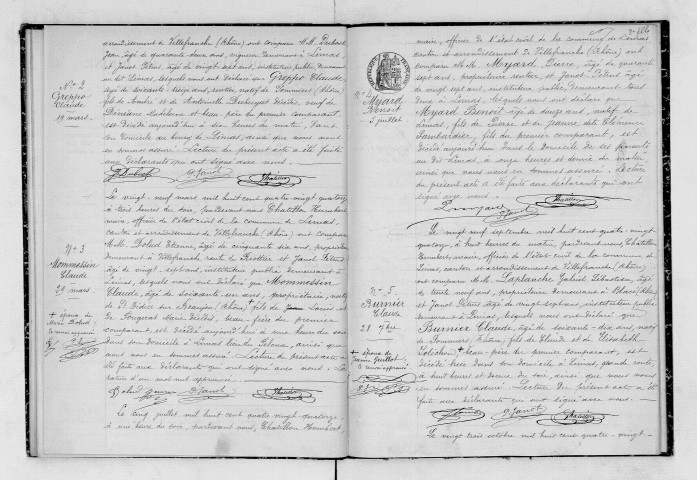 arrondissement de Villefranche (Rhône) ont comparu M.M. Dubost
Jean, âgé de quarante deux ans, vigneron demeurant à Limas,
et Janot Pétrus, âgé de vingt-sept ans, instituteur public, demeurant
au dit Limas, lesquels nous ont déclaré que Greppo Claude,
âgé de soixante-treize ans, rentier, natif de Pommiers (Rhône)
fils de André et de Antoinette décédés, veuf de
Madeleine et beau-père du premier comparant
est décédé aujourd'hui à dix heures du matin, dans
son domicile au bourg de Limas, ainsi que nous nous
en sommes assuré. Lecture du présent acte a été faite
aux déclarants qui ont signé avec nous.
N° 2
Greppo
Claude
19 mars.
Dubost Janot Chatillon
Le vingt-neuf mars mil huit cent quatre-vingt-quatorze
à trois heures du soir, par devant nous Chatillon Humbert
maire, officier de l'état civil de la commune de Limas,
canton et arrondissement de Villefranche (Rhône) ont comparu
M.M. Dolud Etienne, âgé de cinquante dix ans, propriétaire
demeurant à Villefranche, route de et Janot Pétrus
âgé de vingt-sept ans, instituteur public demeurant à
Limas, lesquels nous ont déclaré que Mommessin
Claude, âgé de soixante ans, propriétaire, natif
de St Didier sur Beaujeu (Rhône) fils de Louis et
de Marie décédés, beau-frère du premier
comparant, est décédé aujourd'hui à une heure du soir
dans son domicile à Limas ainsi que
nous nous en sommes assuré. Lecture du présent acte a
été faite aux déclarants qui ont signé avec nous.
N° 3
Mommessin
Claude
29 mars.
+ époux de
Marie Dolud
Janot Chatillon
Le cinq juillet mil huit cent quatre-vingt-quatorze,
à une heure du soir, pardevant nous, Chatillon Humbert,
maire, officier de l'état civil de la commune de Limas
canton et arrondissement de Villefranche (Rhône) ont
comparu M.M. Myard, Pierre, âgé de quarante
sept ans, propriétaire rentier, et Janot Pétrus âgé
de vingt sept ans, instituteur public, demeurant tous
deux à Limas, lesquels nous ont déclaré que
Myard Benoît, âgé de douze ans, natif de
Limas, fils de Pierre et de Jeanne dite Clémence
Lombardier, fils du premier comparant, est
décédé aujourd'hui dans le domicile de ses parents
au dit Limas, à onze heures et demie du matin,
ainsi que nous nous en sommes assuré. Lecture
du présent acte a été faite aux déclarants qui ont
signé avec nous.
N° 4
Myard
Benoît
5 juillet
Myard Janot Chatillon
Le vingt neuf septembre mil huit cent quatre-vingt-
quatorze, à huit heures du matin, pardevant nous, Chatillon
Humbert, maire, officier de l'état civil de la commune de
Limas, canton et arrondissement de Villefranche (Rhône)
ont comparu M.M. Laplanche Gabriel Sébastien, âgé
de trente neuf ans, propriétaire demeurant à
et Janot Pétrus âgé de vingt sept ans, instituteur public
demeurant à Limas, lesquels nous ont déclaré que
Burnier Claude, âgé de soixante-dix ans, natif
de Pommiers (Rhône) fils de Claude et de Elisabeth
+ beau-père du premier comparant, est
décédé dans son domicile à Limas, grande route,
à huit heures et demie du soir, ainsi que nous nous
en sommes assuré. Lecture du présent acte a été
faite aux déclarants qui ont signé avec nous.
N° 5
Burnier
Claude
28 7bre
+ époux de
Jeanne Guillot
Janot Chatillon
Le vingt trois octobre mil huit cent quatre-vingt-